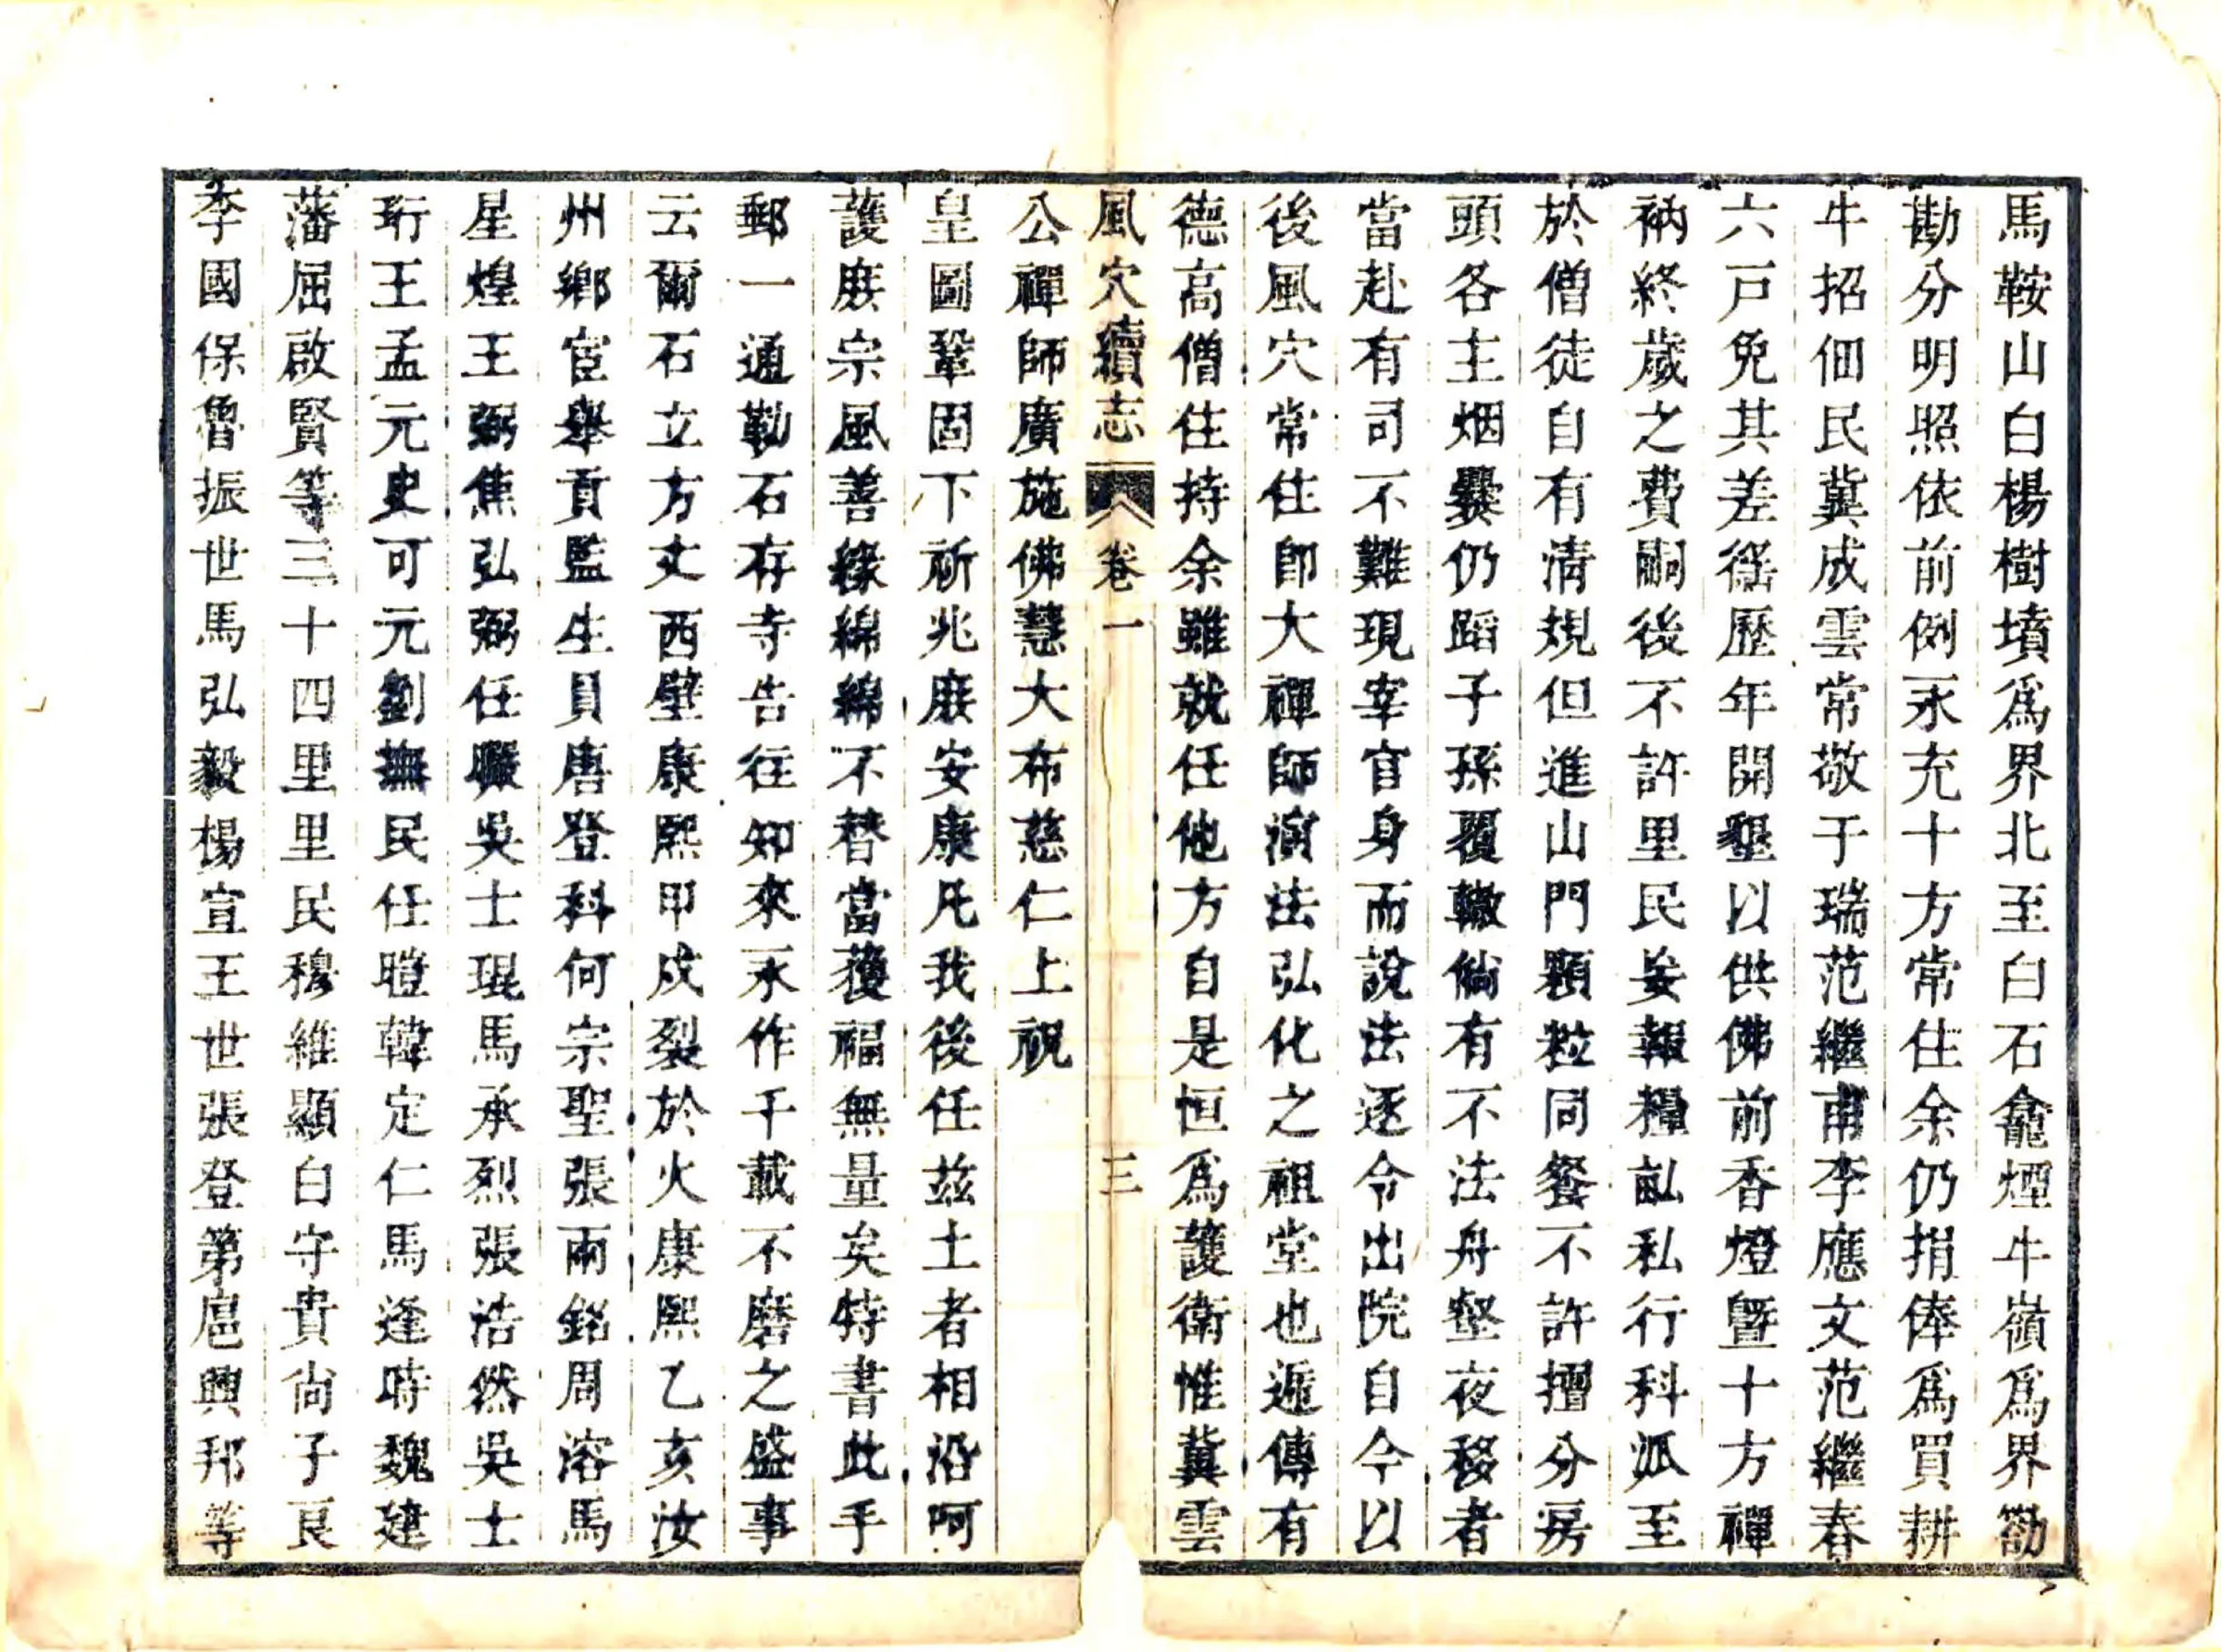 馬鞍山白楊樹墳爲界北至白石龕煙牛嶺爲界勘
勘分明照依前例永充十方常住余仍捐俸爲買耕
牛招佃民冀成雲常敬于瑞范繼甫李應文范繼春
六戸免其差徭歷年開墾以供佛前香燈曁十方禪
衲終歲之費嗣後不許里民妄報糧畝私行科派至
於僧徒自有清規但進山門顆粒同餐不許擅分房
頭各主烟爨仍蹈子孫覆轍倘有不法舟壑夜移者
當赴有司不難現宰官身而說法逐令出院自今以
後風穴常住卽大禪師演法弘化之祖堂也遞傳有
德高僧住持余雖就任他方自是恒爲護衛惟冀雲
風穴續志 卷一 三
公禪師廣施佛慧大布慈仁上祝
皇圖鞏固下祈兆庶安康凡我後任兹土者相沿呵
護庶宗風善緣綿綿不替當獲福無量矣特書此手
郵一通勒石存寺告往知來永作千載不磨之盛事
云爾石立方丈西壁康熙甲戌裂於火康熙乙亥汝
州鄉宦舉貢監生員唐登科何宗聖張兩銘周溶馬
星煌王弼焦弘弼任職吳士琨馬承烈張浩然吳士
珩王孟元史可元劉撫民任暟韓定仁馬逢時魏建
藩屈啟賢等三十四里里民穆維顯白守貴尙子良
李國保魯振世馬弘毅楊宣王世張登第扈興邦等